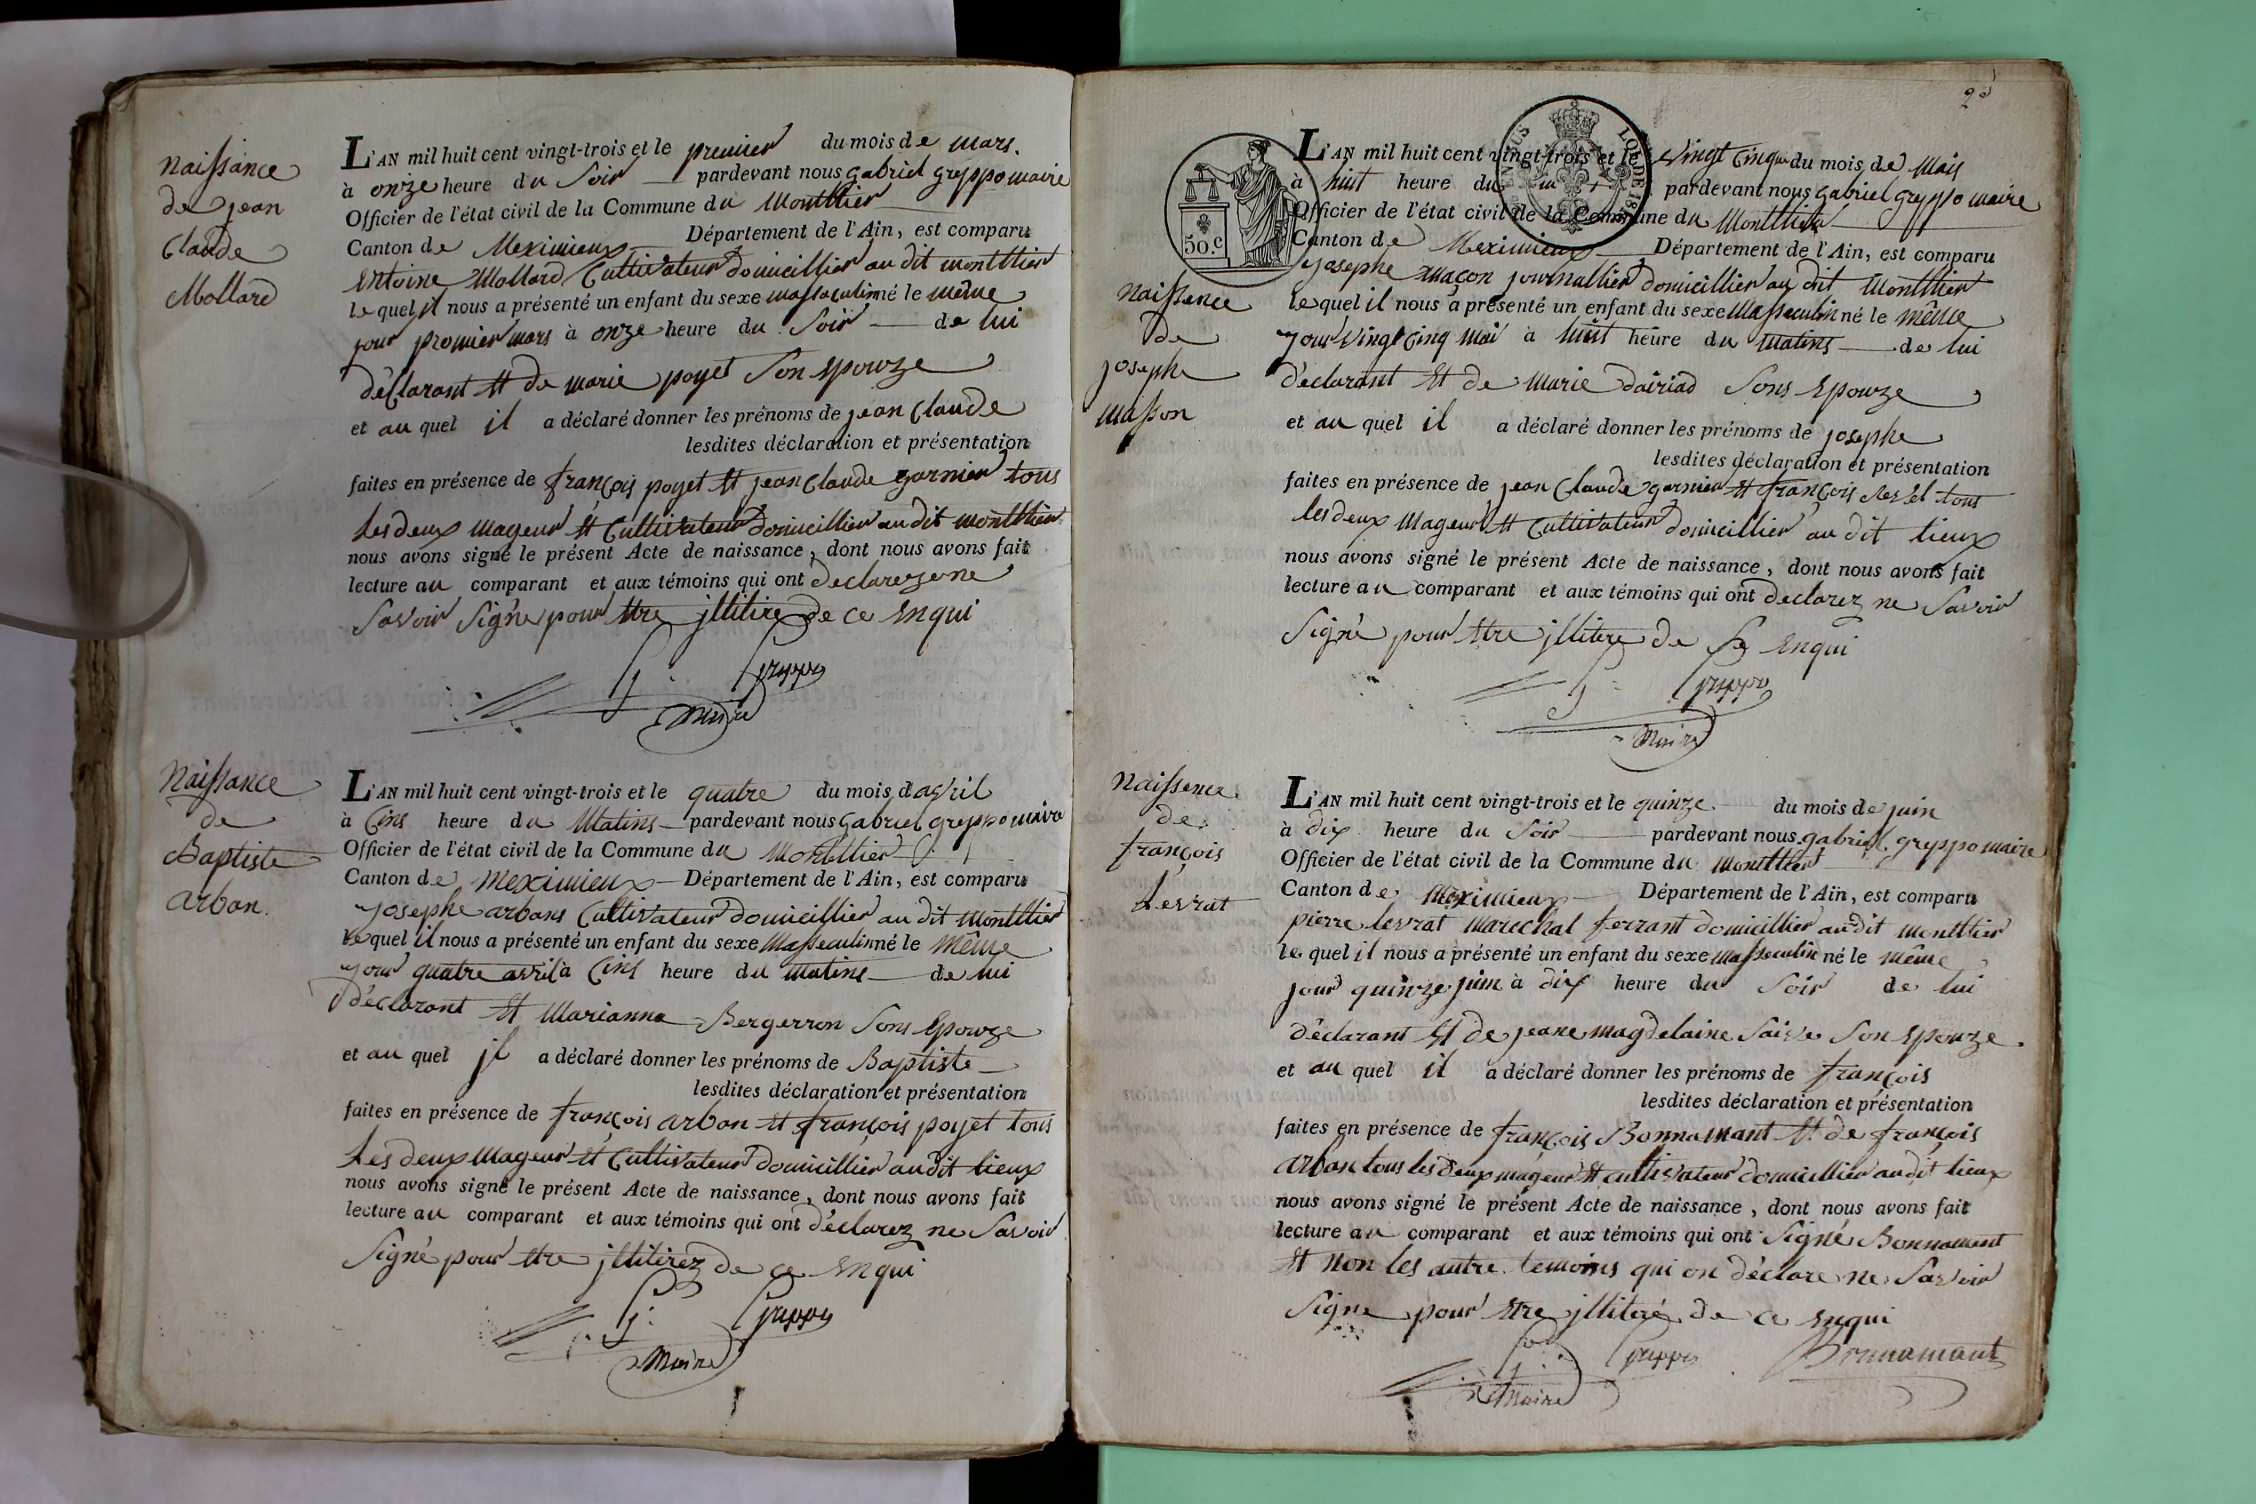 Naissance
de jean
Claude
Mollard
L'AN mil huit cent vingt-trois et le premier du mois de mars.
à onze heure du Soir pardevant nous gabriel greppo maire
Officier de l'état civil de la Commune du Montthier
Canton de Meximieux Département de l'Ain, est comparu
antoine Mollard Cultivateur domicillier au dit montthier
le quel il nous a présenté un enfant du sexe massaculin né le même
jour premier mars à onze heure du Soir de lui
déclarant et de marie poyet Son epouze
et au quel il a déclaré donner les prénoms de jean Claude
lesdites déclaration et présentation
faites en présence de françois poyet et jean Claude garnier tous
les deux mageur et Cultivateur domicillier au dit montthier
nous avons signé le présent Acte de naissance, dont nous avons fait
lecture au comparant et aux témoins qui ont declarez ne
Savoir Signé pour etre jllitire de ce enqui
G: Greppo
Maire
Naissance
de
Baptiste
arban.
L'AN mil huit cent vingt-trois et le quatre du mois d'avril
à Cins heure du Matins pardevant nous gabriel greppo maire
Officier de l'état civil de la Commune du Montthier
Canton de Meximieux Département de l'Ain, est comparu
josephe arbans Cultivateur domicillier au dit montthier
le quel il nous a présenté un enfant du sexe Masseculin né le même
jour quatre avril à Cins heure du matins de lui
déclarant et Marianne Bergerron Sons Epouze
et au quel jl a déclaré donner les prénoms de Baptiste
lesdites déclaration et présentation
faites en présence de françois arban et françois poyet tous
Les deux Mageur et Cultivateur domicillier au dit lieux
nous avons signé le présent Acte de naissance, dont nous avons fait
lecture au comparant et aux témoins qui ont déclarez ne Savoir
Signé pour etre jllitirez de ce enqui
G: Greppo
Maire
2
50.C
L'AN mil huit cent vingt-trois et le vingt Cinq du mois de Mais
à huit heure du pardevant nous gabriel greppo maire
Officier de l'état civil de la Commune du Montthier
Canton de Meximieux Département de l'Ain, est comparu
josephe maçon journallier domicillier au dit Montthier
Naissence
de
josephe
masson
le quel il nous a présenté un enfant du sexe Masseculin né le même
jour vingt Cinq Mai à huit heure du matins de lui
déclarant et de marie dairiad Sons Epouze
et au quel il a déclaré donner les prénoms de josephe
lesdites déclaration et présentation
faites en présence de jean Claude garnier et françois tous
les deux Mageur et Cultivateur domicillier au dit lieux
nous avons signé le présent Acte de naissance, dont nous avons fait
lecture au comparant et aux témoins qui ont declarez ne Savoir
Signé pour etre jllitere de Ce enqui
G: Greppo
Maire
Naissence
de
françois
Levrat
L'AN mil huit cent vingt-trois et le quinze du mois de juin
à dix heure du Soir pardevant nous gabriel greppo maire
Officier de l'état civil de la Commune du Montthier
Canton de Meximieux Département de l'Ain, est comparu
pierre levrat marechal ferrant domicillier au dit montthier
le quel il nous a présenté un enfant du sexe masseculin né le même
jour quinze juin à dix heure du Soir de lui
déclarant et de jeane magdelaine Saive Son epouze
et au quel il a déclaré donner les prénoms de françois
lesdites déclaration et présentation
faites en présence de françois Bonnamant et de françois
arban tous les deux mageur et cultivateur domicillier au dit lieux
nous avons signé le présent Acte de naissance, dont nous avons fait
lecture au comparant et aux témoins qui ont Signé Bonnament
et non les autre temoins qui on déclare ne Savoir
Signe pour etre jllitéré de ce enqui
G: Greppo Bonnamant
Maire